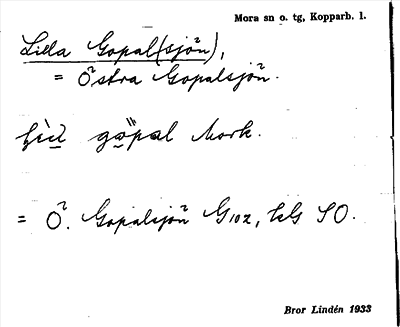 Mora sn o. tg, Kopparb. l.
Lilla Gopal(sjön),
= Östra Gopalsjön.
gòpal Mork.
= Ö. Gopalsjön G102, SO.
Bror Lindén 1933